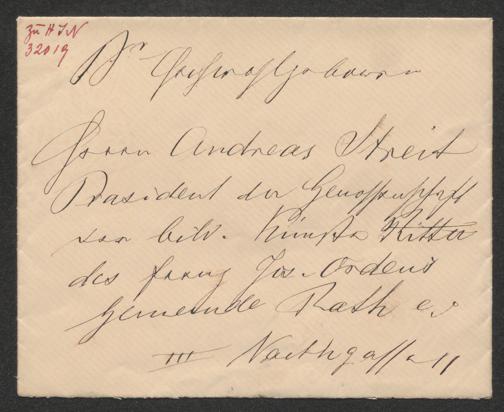 zu H I N
32019
Sr Hochwohlgeboren
Herrn Andreas Streit
Präsident der Genossenschaft
der bild. Künste Ritter
des franz Jos. Ordens
Gemeinde Rath e.
III